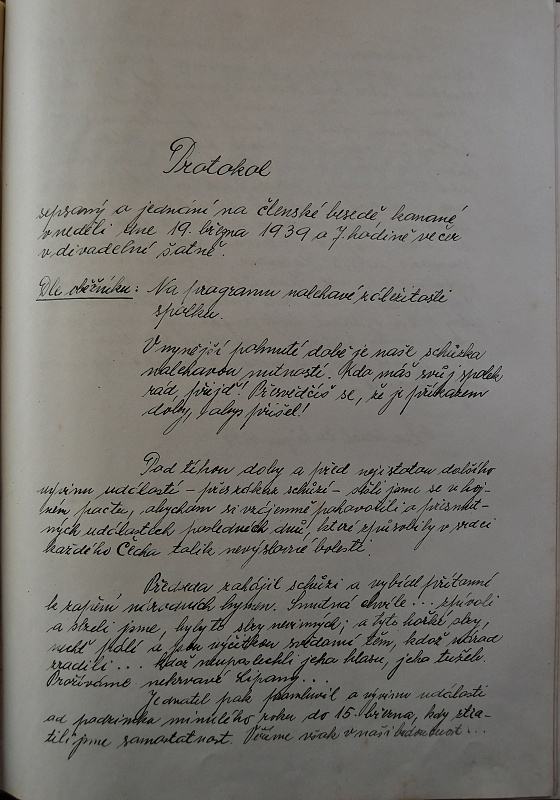 Protokol
sepsaný o jednání na členské besedě konané
v neděli dne 19. března 1939 o 7. hodině večer
v divadelní šatně.
Dle oběžníku: Na programu nalehavé záležitosti
spolku.
V nynější pohnuté době je naše schůzka
nalehavou nutností. Kdo máš svůj spolek
rád, přijď! Přesvědčíš se, že je příkazem
doby, abys přišel!
Pod tíhou doby a před nejistotou dalšího
vývinu událostí – přes zákaz schůzí – sešli jsme se v hoj-
ném počtu, abychom si vzájemně pohovořili o přesmut-
ných událostech posledních dnů, které způsobily v srdci
každého Čecha tolik nevýslovné bolesti.
Předseda zahájil schůzi a vybídl přítomné
k zapění národních hymen. Smutná chvíle... zpívali
a slzeli jsme, byly to slzy nevinných; a tyto hořké slzy,
nechť pálí a jsou výčitkou svědomí těm, kdož národ
zradili... kdož neuposlechli jeho hlasu, jeho tužeb.
Prožíváme nekrvavé Lipany...
Jednatel pak promluvil o vývinu událostí
od podzimka minulého roku do 15. března, kdy ztra-
tili jsme samostatnost. Věříme však v naši budoucnost...